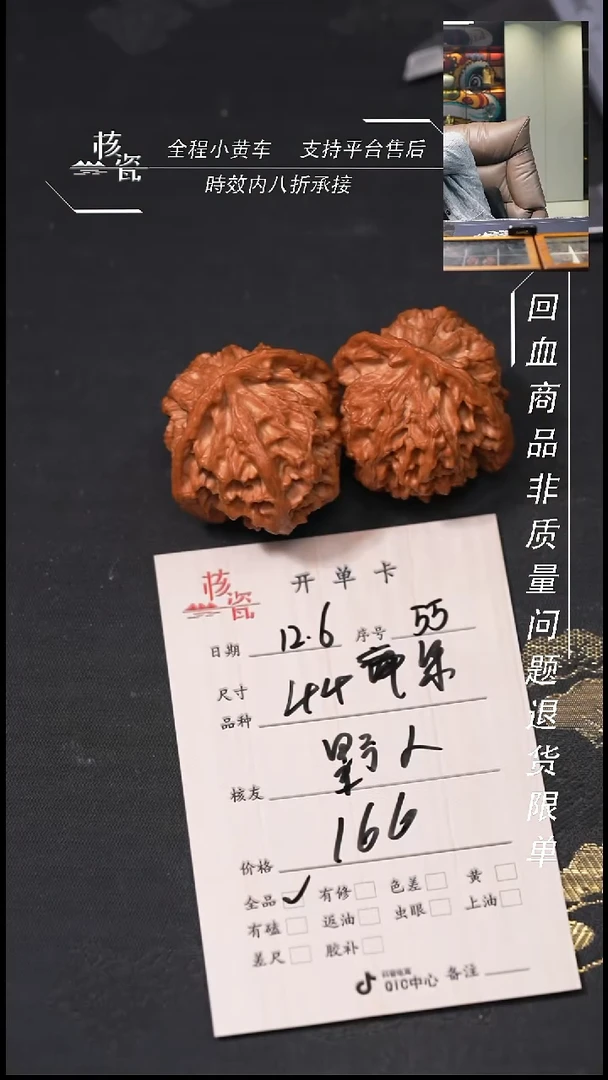 核瓷
全程小黄车 支持平台售后
時效内八折承接
回血商品非质量问题退货限单
核瓷
开单卡
日期 12.6 序号 55
尺寸
品种 44
核友 野人
价格 166
全品 ✓ 有修 色差 黄
有磕 返油 虫眼 上油
差尺 胶补
抖音电商
QIC中心 备注